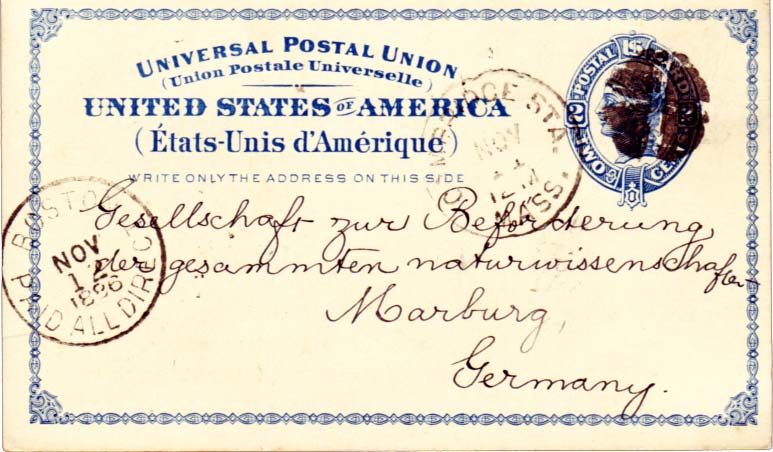 UNIVERSAL POSTAL UNION
(Union Postale Universelle)
UNITED STATES OF AMERICA
(États-Unis d'Amérique)
WRITE ONLY THE ADDRESS ON THIS SIDE
POSTAL CARD
TWO CENTS
2
STA.
NOV
12 M
MASS.
BOSTON
NOV
1896
PAID ALL DIRECT
Gesellschaft zur Beförderung
der gesammten naturwissenschaften
Marburg,
Germany.